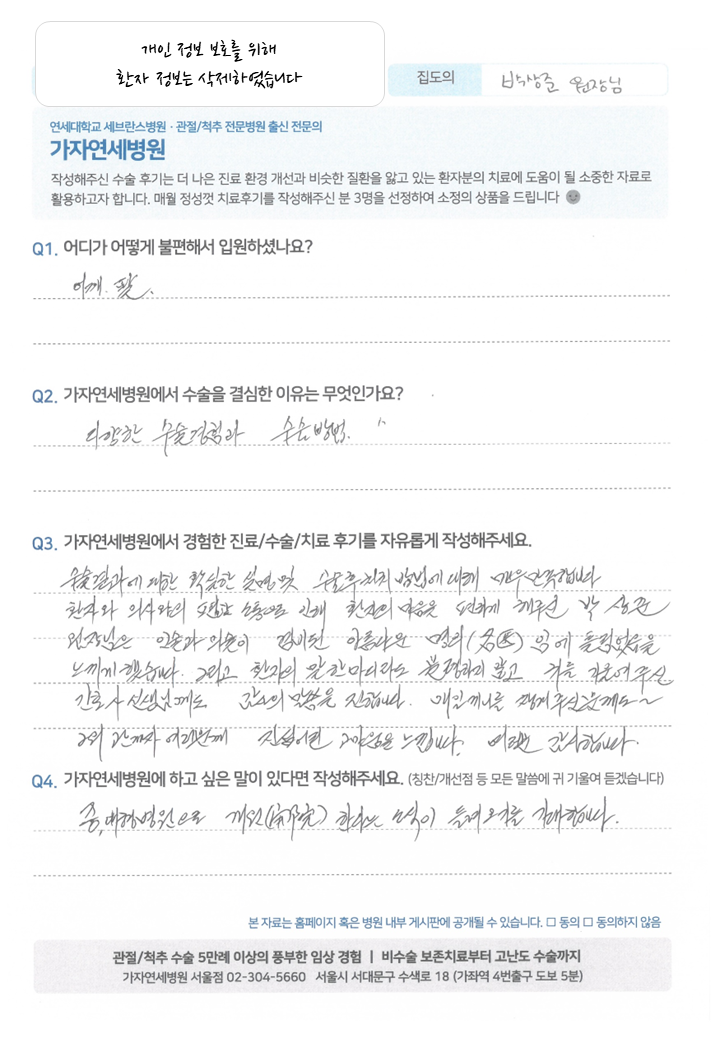 개인 정보 보호를 위해
환자 정보는 삭제하였습니다
집도의 박상준 원장님
연세대학교 세브란스병원 · 관절/척추 전문병원 출신 전문의
가자연세병원
작성해주신 수술 후기는 더 나은 진료 환경 개선과 비슷한 질환을 앓고 있는 환자분의 치료에 도움이 될 소중한 자료로
활용하고자 합니다. 매월 정성껏 치료후기를 작성해주신 분 3명을 선정하여 소정의 상품을 드립니다
Q1. 어디가 어떻게 불편해서 입원하셨나요?
어깨. 팔.
Q2. 가자연세병원에서 수술을 결심한 이유는 무엇인가요?
다양한 수술경험과 수술방법.
Q3. 가자연세병원에서 경험한 진료/수술/치료 후기를 자유롭게 작성해주세요.
수술결과에 대한 확실한 설명 및 수술후 처치 방법에 대해 매우만족합니다
환자와 의사와의 소통으로 인해 환자의 마음을 편하게 해주신 박상준
원장님은 인술과 의술이 겸비된 아름다운 명의(名医)임에 틀림없음을
느끼게 했습니다. 그리고 환자의 말 한마디라도 불평하지 않고 귀를 기울여 주신
간호사 선생님께도 감사의 말씀을 전합니다. 매일 끼니를 챙겨주신분께도~
그외 관계자 여러분께 진심어린 고마움을 느낍니다. 감사합니다.
Q4. 가자연세병원에 하고 싶은 말이 있다면 작성해주세요. (칭찬/개선점 등 모든 말씀에 귀 기울여 듣겠습니다)
중,대형병원으로 개원 한다는 소식이 들려오기를 기대합니다.
본 자료는 홈페이지 혹은 병원 내부 게시판에 공개될 수 있습니다. □ 동의 □ 동의하지 않음
관절/척추 수술 5만례 이상의 풍부한 임상 경험 | 비수술 보존치료부터 고난도 수술까지
가자연세병원 서울점 02-304-5660 서울시 서대문구 수색로 18 (가좌역 4번출구 도보 5분)